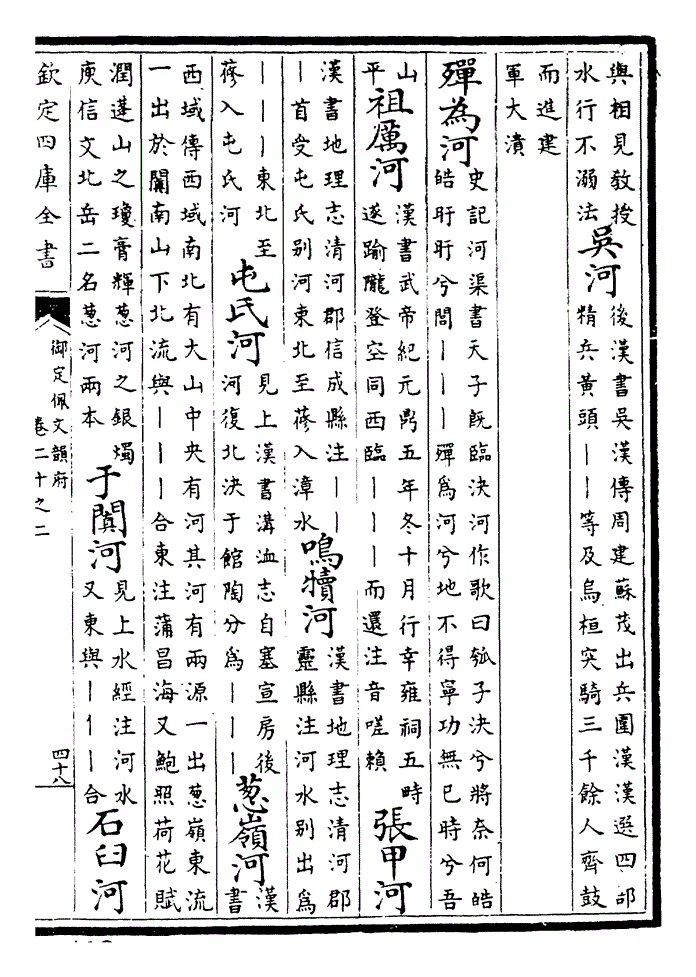 與相見敎授
水行不溺法
吳河
後漢書吳漢傳周建蘇茂出兵圍漢漢選四部
精兵黃頭｜｜等及烏桓突騎三千餘人齊鼓
而進建
軍大潰
殫為河
史記河渠書天子旣臨決河作歌曰瓠子決兮將奈何皓
皓旰旰兮閭｜｜｜殫為河兮地不得寧功無已時兮吾
山
平
祖厲河
漢書武帝紀元鼎五年冬十月行幸雍祠五畤
遂踰隴登空同西臨｜｜｜而還注音嗟賴
張甲河
漢書地理志清河郡信成縣注｜｜
｜首受屯氏別河東北至蓨入漳水
鳴犢河
漢書地理志清河郡
靈縣注河水別出為
｜｜｜東北至
蓨入屯氏河
屯氏河
見上漢書溝洫志自塞宣房後
河復北決于館陶分為｜｜｜
葱嶺河
漢
書
西域傳西域南北有大山中央有河其河有兩源一出葱嶺東流
一出於闐南山下北流與｜｜｜合東注蒲昌海又鮑照荷花賦
潤蓬山之瓊膏輝葱河之銀燭
庾信文北岳二名葱河兩本
于闐河
見上水經注河水
又東與｜｜｜合
石臼河
欽定四庫全書
御定佩文韻府
卷二十之二
四十八